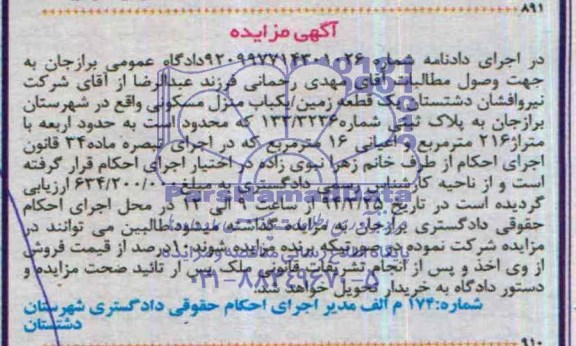 ۸۹۱
آگهی مزایده
در اجرای دادنامه شماره ۹۲۰۹۹۷۷۱۴۳۰۱۰۲۶دادگاه عمومی برازجان به
جهت وصول مطالبات آقای مهدی رحمانی فرزند عبدالرضا از آقای شرکت
نیروافشان دشتستان یک قطعه زمین/یکباب منزل مسکونی واقع در شهرستان
برازجان به پلاک ثبتی شماره۱۳۳/۳۲۳۶ که محدود است به حدود اربعه با
متراژ۲۱۶ مترمربع و اعیانی ۱۶ مترمربع که در اجرای تبصره ماده۳۴ قانون
اجرای احکام از طرف خانم زهرا نبوی زاده در اختیار اجرای احکام قرار گرفته
است و از ناحیه کارشناس رسمی دادگستری به مبلغ ۶۳۴/۲۰۰/۰۰۰ ارزیابی
گردیده است در تاریخ ۹۴/۳/۲۵ از ساعت ۹ الی ۱۲ در محل اجرای احکام
حقوقی دادگستری برازجان به مزایده گذاشته میشود طالبین می توانند در
مزایده شرکت نموده در صورتیکه برنده مزایده شوند ۱۰درصد از قیمت فروش
از وی اخذ و پس از انجام تشریفات قانونی ملک پس از تائید صحت مزایده و
دستور دادگاه به خریدار تحویل خواهد شد.
شماره:۱۷۴ م الف مدیر اجرای احکام حقوقی دادگستری شهرستان
دشتستان
۹۱۰
ParsNamadData
پایگاه اطلاع رسانی مناقصه و مزایده
۰۲۱-۸۸۳۴۹۶۷۰-۵